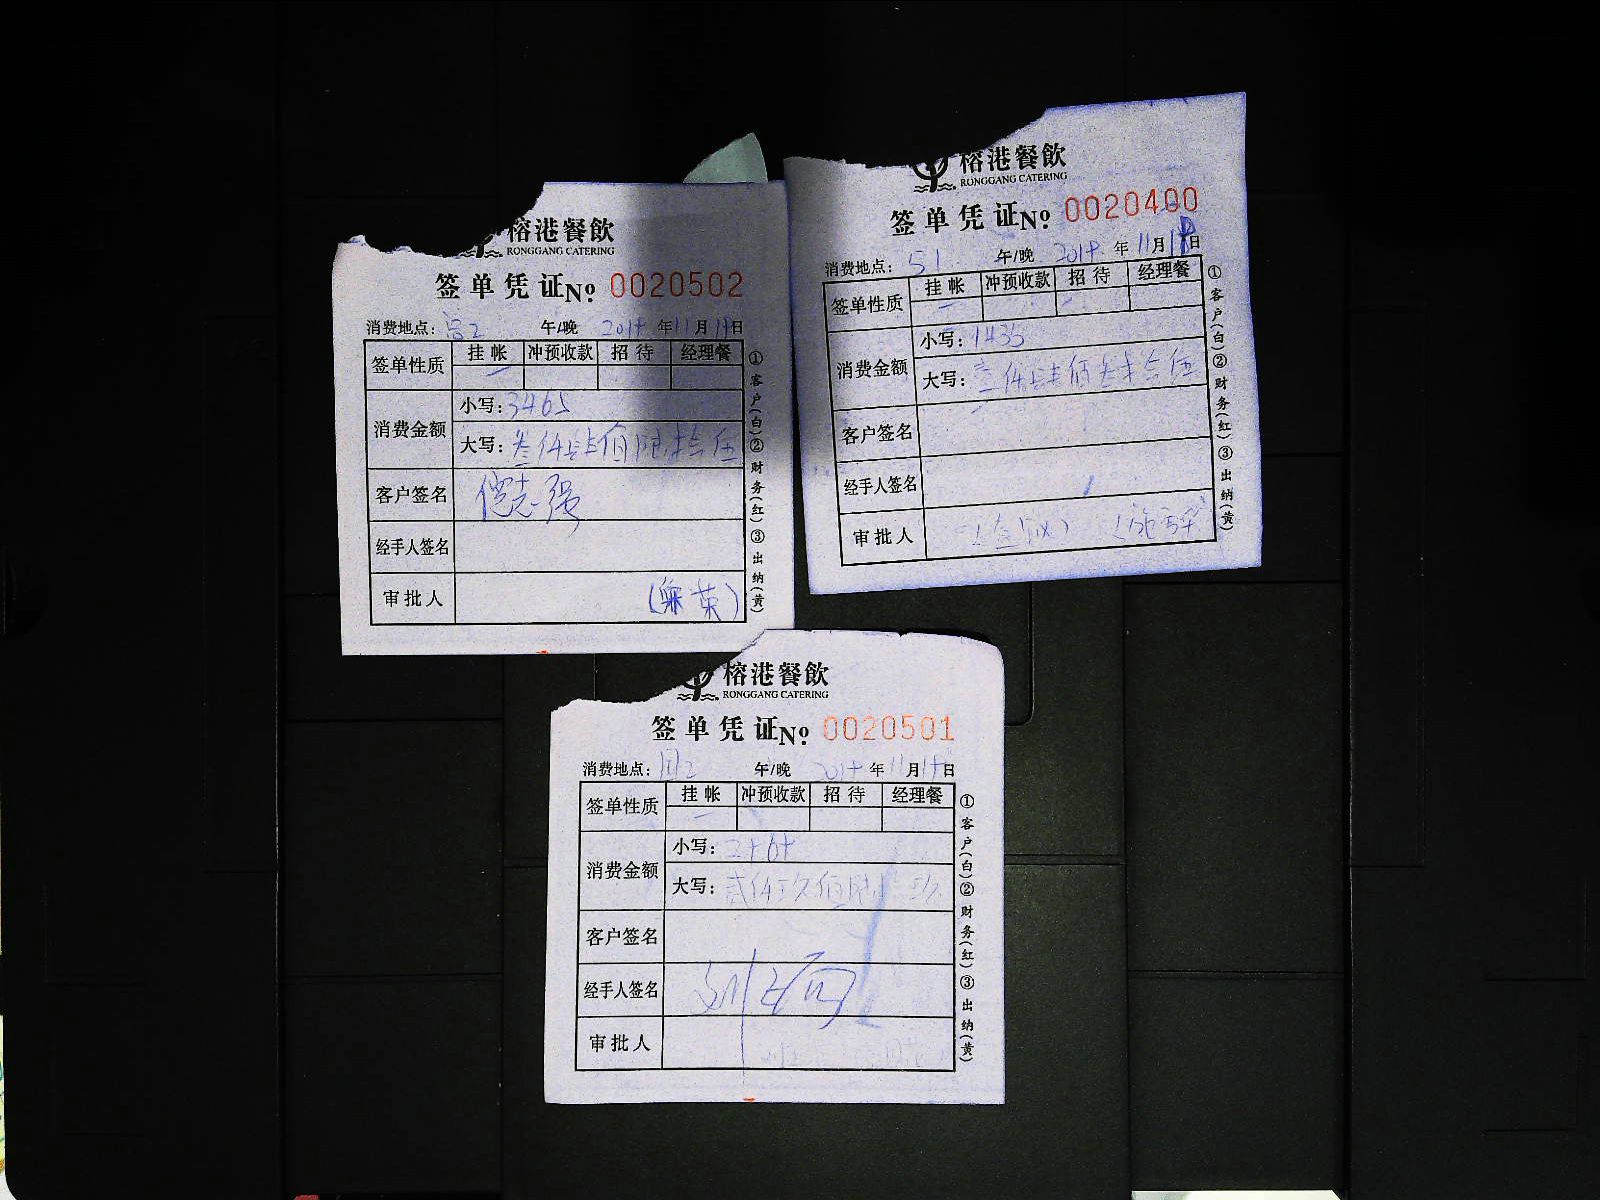 榕港餐飲
RONGGANG CATERING
签单凭证No. 0020502
消费地点: 午/晚 年11月 日
签单性质 挂帐 冲预收款 招待 经理餐
消费金额 小写: 3465
大写: 叁仟肆佰陆拾伍
客户签名 志强
经手人签名
审批人
①客户(白)②财务(红)③出纳(黄)
榕港餐飲
RONGGANG CATERING
签单凭证No. 0020400
消费地点: 51 午/晚 年11月 日
签单性质 挂帐 冲预收款 招待 经理餐
消费金额 小写: 1435
大写: 仟肆佰 拾伍
客户签名
经手人签名
审批人
①客户(白)②财务(红)③出纳(黄)
榕港餐飲
RONGGANG CATERING
签单凭证No. 0020501
消费地点: 午/晚 年11月 日
签单性质 挂帐 冲预收款 招待 经理餐
消费金额 小写:
大写: 贰仟玖佰陆
客户签名
经手人签名 刘
审批人
①客户(白)②财务(红)③出纳(黄)